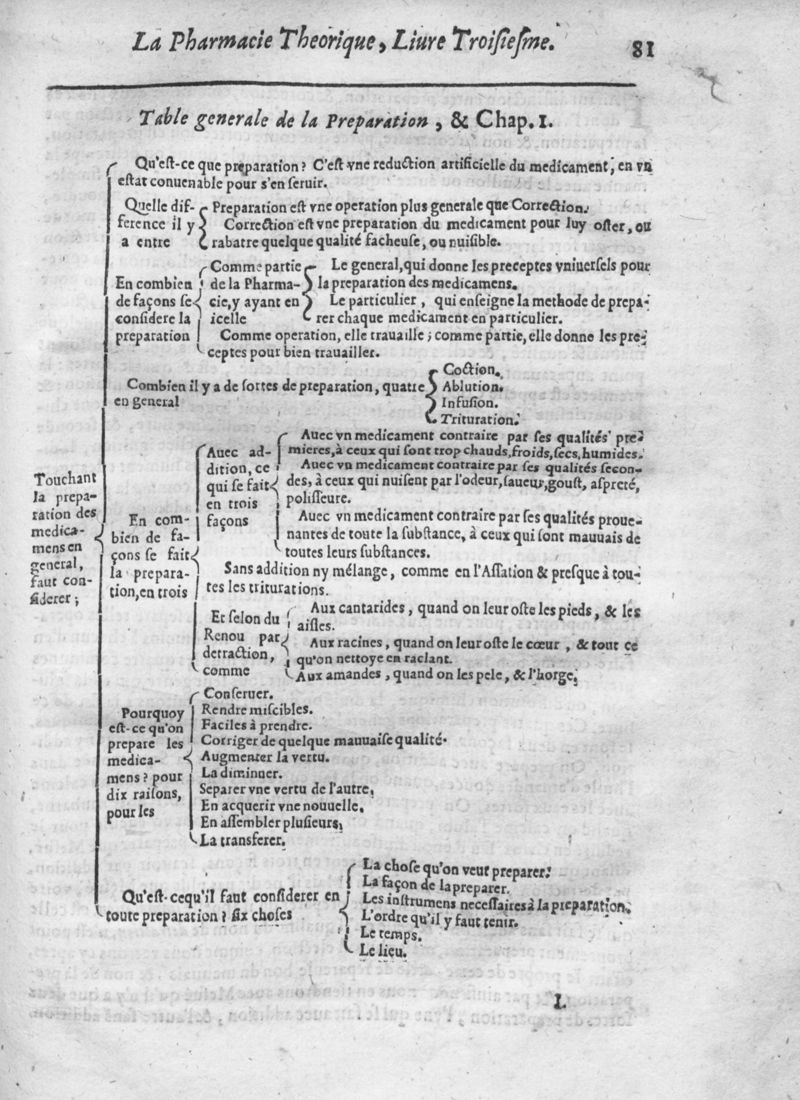 La Pharmacie Theorique, Liure Troisiesme. 81
Table generale de la Preparation, & Chap. I.
Touchant
la prepa-
ration des
medica-
mens en
general,
faut con-
siderer;
Qu'est-ce que preparation? C'est vne reduction artificielle du medicament, en vn
estat conuenable pour s'en seruir.
Quelle dif-
ference il y
a entre
Preparation est vne operation plus generale que Correction.
Correction est vne preparation du medicament pour luy oster, ou
rabatre quelque qualité facheuse, ou nuisible.
En combien
de façons se
considere la
preparation
Comme partie
de la Pharma-
cie, y ayant en
icelle
Le general, qui donne les preceptes vniuersels pour
la preparation des medicamens.
Le particulier, qui enseigne la methode de prepa-
rer chaque medicament en particulier.
Comme operation, elle trauaille; comme partie, elle donne les pre-
ceptes pour bien trauailler.
Combien il y a de sortes de preparation, quatre
en general
Coction.
Ablution.
Infusion.
Trituration.
En com-
bien de fa-
çons se fait
la prepara-
tion, en trois
Auec ad-
dition, ce
qui se fait
en trois
façons
Auec vn medicament contraire par ses qualités pre-
mieres, à ceux qui sont trop chauds, froids, secs, humides.
Auec vn medicament contraire par ses qualités secon-
des, à ceux qui nuisent par l'odeur, saueur, goust, aspreté,
polisseure.
Auec vn medicament contraire par ses qualités proue-
nantes de toute la substance, à ceux qui sont mauuais de
toutes leurs substances.
Sans addition ny mélange, comme en l'Assation & presque à tou-
tes les triturations.
Et selon du
Renou par
detraction,
comme
Aux cantarides, quand on leur oste les pieds, & les
aisles.
Aux racines, quand on leur oste le cœur, & tout ce
qu'on nettoye en raclant.
Aux amandes, quand on les pele, & l'horge,
Pourquoy
est-ce qu'on
prepare les
medica-
mens? pour
dix raisons,
pour les
Conseruer.
Rendre miscibles.
Faciles à prendre.
Corriger de quelque mauuaise qualité.
Augmenter la vertu.
La diminuer.
Separer vne vertu de l'autre.
En acquerir vne nouuelle.
En assembler plusieurs,
La transferer.
Qu'est-cequ'il faut considerer en
toute preparation? six choses
La chose qu'on veut preparer.
La façon de la preparer.
Les instrumens necessaires à la preparation.
L'ordre qu'il y faut tenir.
Le temps.
Le lieu.
L